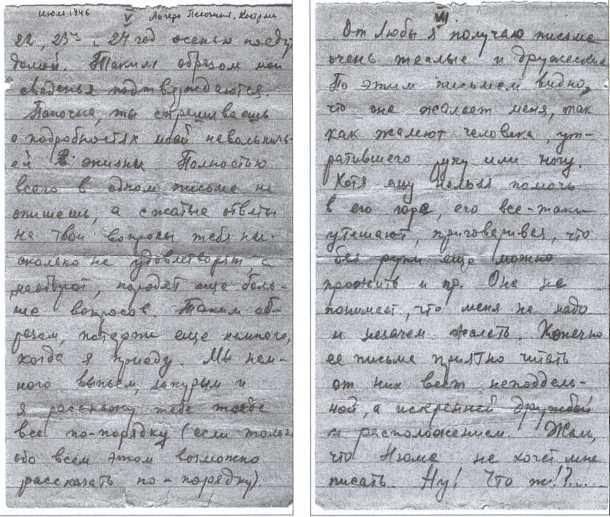 июль 1946 V Лагерь Песочная, Кострома
22, 23 и 24 год осенью поедут
домой. Таким образом мои
сведенья подтверждаются.
Папочка, ты спрашиваешь
о подробностях моей невольничь-
ей жизни. Полностью
всего в одном письме не
опишешь, а сжатые ответы
на твои вопросы тебя ни-
сколько не удовлетворят, а
наоборот, породят еще боль-
ше вопросов. Таким об-
разом, потерпи еще немного,
когда я приеду. Мы нем-
ного выпьем, закурим и
я расскажу тебе тогда
все по-порядку (если только
обо всем этом возможно
рассказать по-порядку).
VII
От Любы я получаю письма
очень теплые и дружеские.
По этим письмам видно,
что она жалеет меня, так
как жалеют человека, ут-
ратившего руку или ногу.
Хотя ему нельзя помочь
в его горе, его все-таки
утешают, приговаривая, что
без руки еще можно
прожить и пр. Она не
понимает, что меня не надо
и незачем жалеть. Конечно
ее письма приятно читать
от них веет неподдель-
ной, а искренней дружбой
и расположением. Жаль,
что Нюма не хочет мне
писать. Ну! Что ж!?...